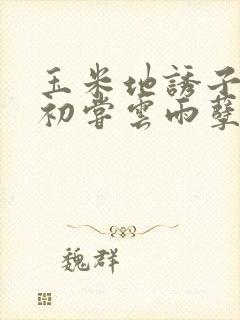 玉米地誘子
初嘗雲雨孽
魏群